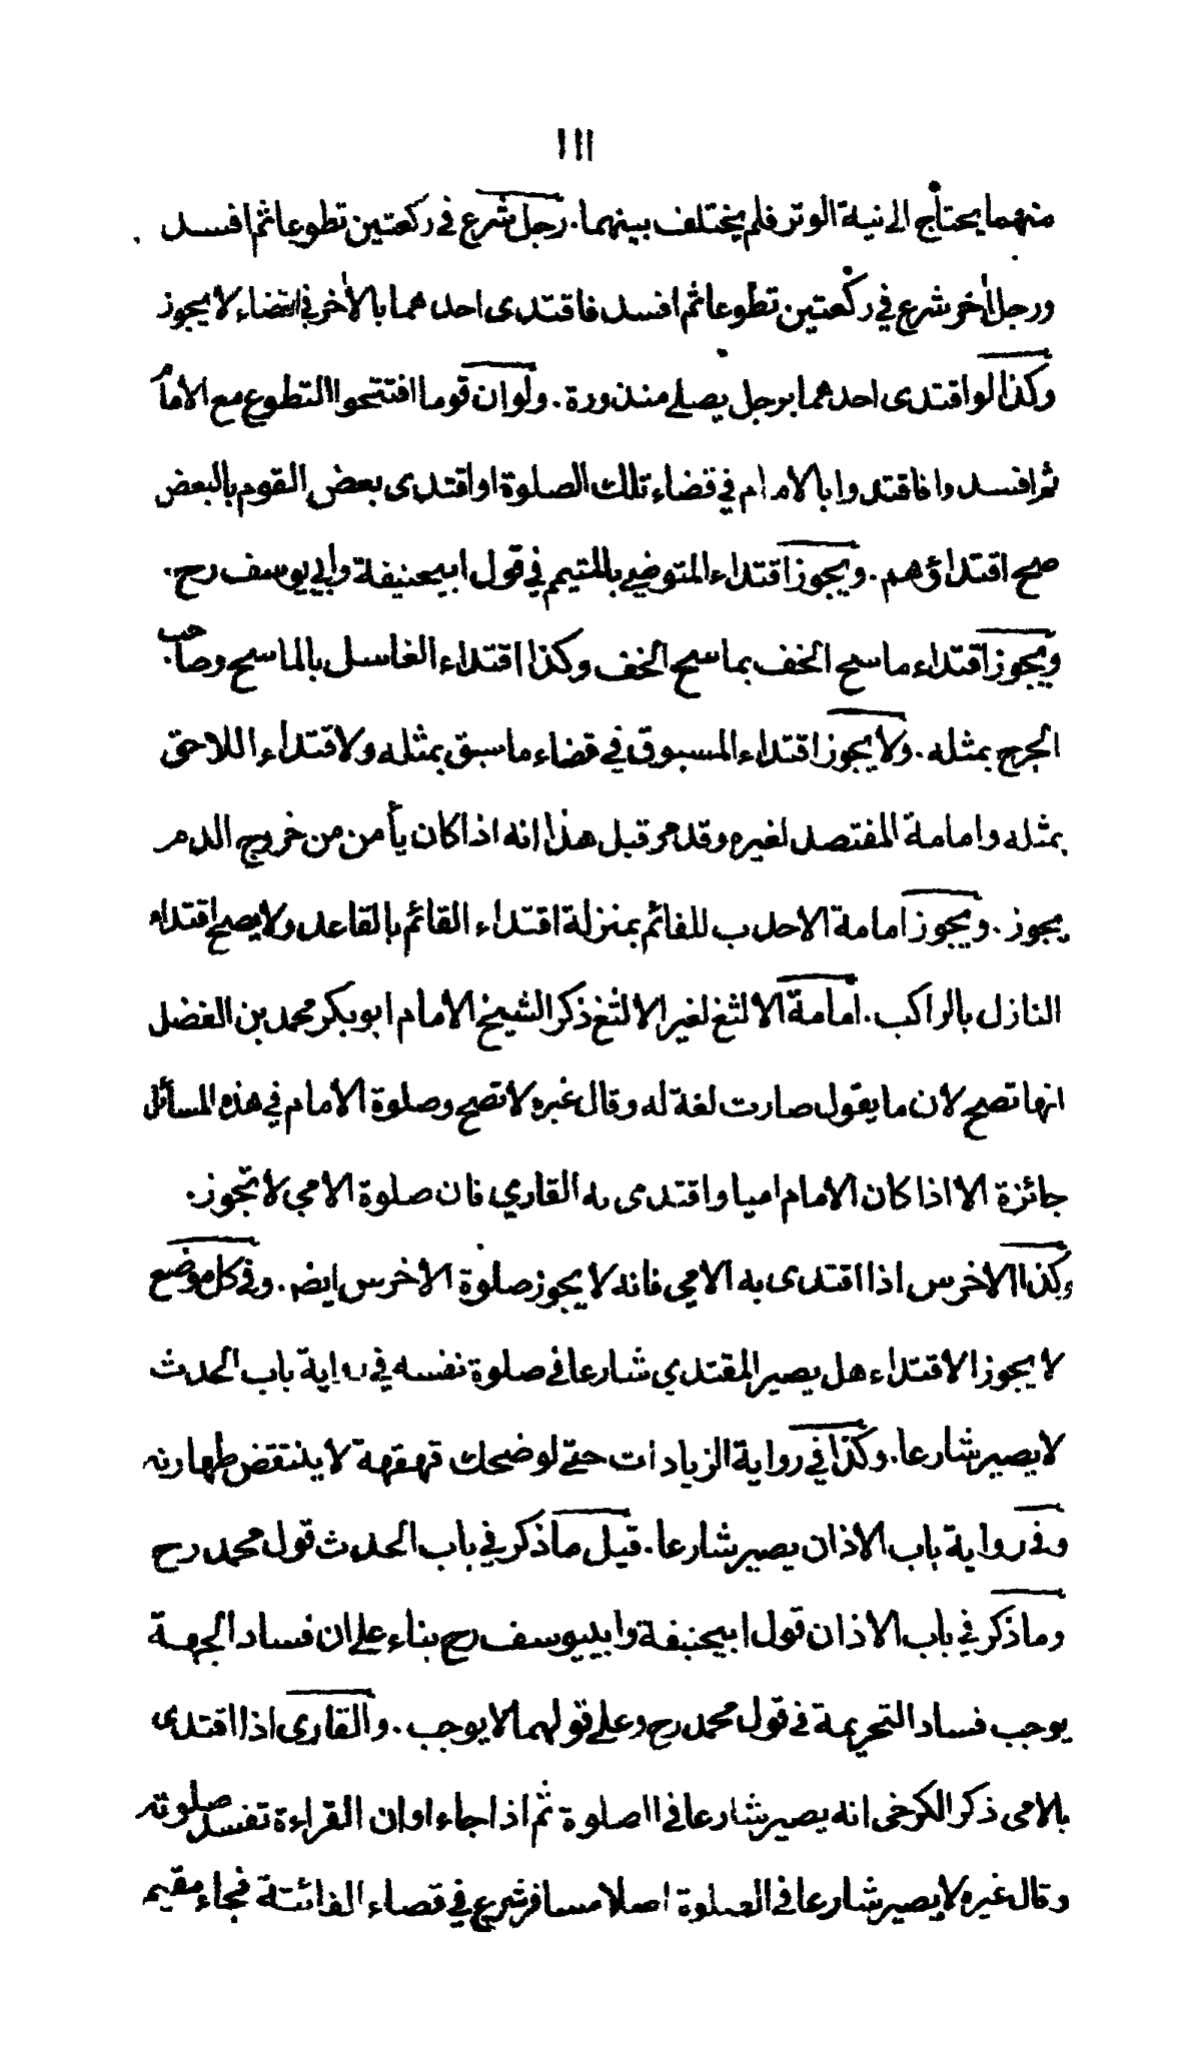 ١١١
منهما يحتاج الى نية الوتر فلم يختلف بينهما. رجل شرع في ركعتين تطوعا ثم افسد
ورجل اخر شرع في ركعتين تطوعا ثم افسد فاقتدى احدهما بالأخر في القضاء لا يجوز
وكذا لو اقتدى احدهما برجل يصلے منذورة. ولو ان قوما افتتحوا التطوع مع الأمام
ثم افسدوا فاقتدوا بالامام في قضاء تلك الصلوة او اقتدى بعض القوم بالبعض
صح اقتداؤهم. ويجوز اقتداء المتوضي بالمتيم في قول ابيحنيفة وابي يوسف رح.
ويجوز اقتداء ماسح الخف بماسح الخف وكذا اقتداء الغاسل بالماسح وصاحب
الجرح بمثله. ولا يجوز اقتداء المسبوق في قضاء ما سبق بمثله ولا اقتداء اللاحق
بمثله وامامة المفتصد لغيره وقد مر قبل هذا انه اذا كان يأمن من خروج الدم
يجوز. ويجوز امامة الاحدب للقائم بمنزلة اقتداء القائم بالقاعد ولا يصح اقتداء
النازل بالراكب. امامة الالثغ لغير الالثغ ذكر الشيخ الامام ابو بكر محمد بن الفضل
انها تصح لان ما يقول صارت لغة له وقال غيره لا تصح وصلوة الامام في هذه المسائل
جائزة الا اذا كان الامام اميا واقتدى به القاري فان صلوة الامي لا تجوز.
وكذا الاخرس اذا اقتدى به الامي فانه لا يجوز صلوة الاخرس ايضا. وفي كل موضع
لا يجوز الاقتداء هل يصير المقتدي شارعا في صلوة نفسه في رواية باب الحدث
لا يصير شارعا. وكذا في رواية الزيادات حتے لو ضحك قهقهة لا ينتقض طهارته
وفي رواية باب الاذان يصير شارعا. قيل ما ذكر في باب الحدث قول محمد رح
وما ذكر في باب الاذان قول ابيحنيفة وابييوسف رح بناء علے ان فساد الجهة
يوجب فساد التحريمة في قول محمد رح وعلے قولهما لا يوجب. والقارى اذا اقتدى
بالامى ذكر الكرخى انه يصير شارعا في الصلوة ثم اذا جاء اوان القراءة تفسد صلوته
وقال غيره لا يصير شارعا في الصلوة اصلا مسافر شرع في قضاء الفائتة فجاء مقيم